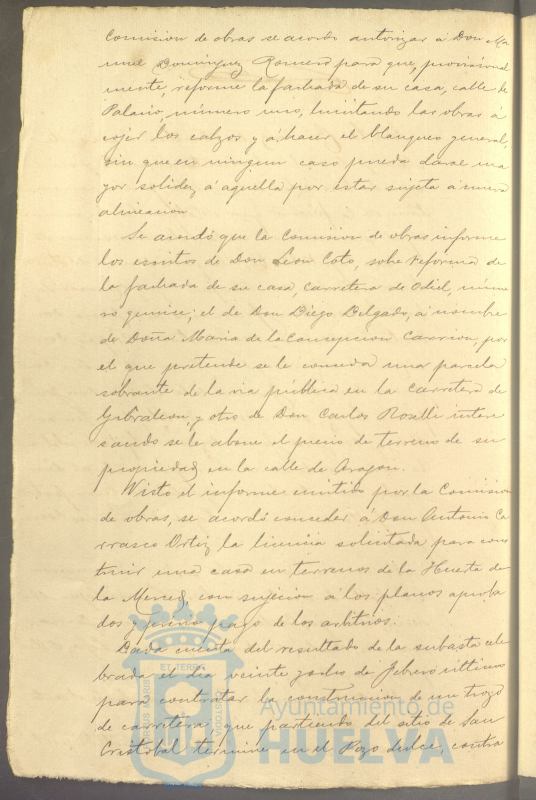 Comision de obras se acordó autorizar á Don Ma
nuel Dominguez Romero para que, provisional
mente, reforme la fachada de su casa, calle de
Palacio, número uno, limitando las obras á
cojer los calzos y á hacer el blanqueo general,
sin que en ningun caso pueda darse ma
yor solidez á aquella por estar sujeta á nueva
alineacion.
Se acordó que la Comision de obras informe
los escritos de Don Leon Coto, sobre reforma de
la fachada de su casa, Carretera de Odiel, núme
ro quince; el de Don Diego Delgado, á nombre
de Doña Maria de la Concepcion Carrion, por
el que pretende se le conceda una parcela
sobrante de la via pública en la Carretera de
Gibraleon, y otro de Don Carlos Roselli intere
sando se le abone el precio de terreno de su
propiedad en la calle de Aragon.
Visto el informe emitido por la Comision
de obras, se acordó conceder á Don Antonio Ca
rrasco Ortiz la licencia solicitada para cons
truir una casa en terrenos de la Huerta de
la Merced, con sujecion á los planos aproba
dos y prévio pago de los arbitrios.
Dada cuenta del resultado de la subasta cele
brada el dia veinte y ocho de Febrero último
para contratar la construccion de un trozo
de carretera, que partiendo del sitio de San
Cristobal termine en el Pozo dulce, contra
ET TERRA
Ayuntamiento de
HUELVA